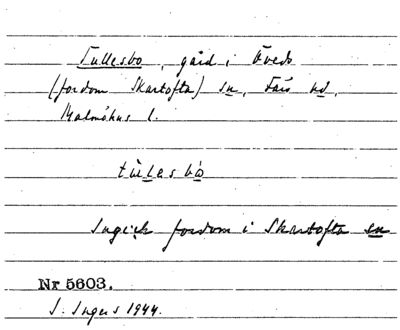 Tullesbo, gård i Öveds
(fordom Skartofta) sn, Färs hd,
Malmöhus l.
tùlesbó
Ingick fordom i Skartofta sn
Nr 5603.
I. Ingers 1944.